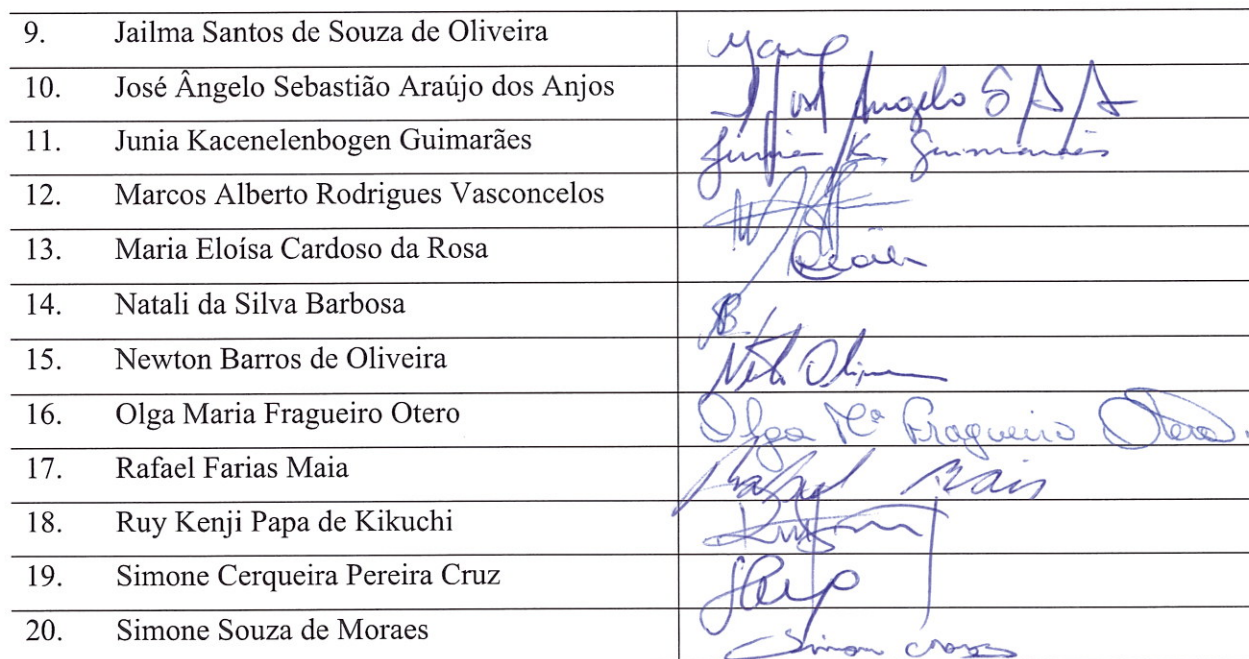 9. Jailma Santos de Souza de Oliveira
10. José Ângelo Sebastião Araújo dos Anjos José Angelo S A A
11. Junia Kacenelenbogen Guimarães Junia K. Guimarães
12. Marcos Alberto Rodrigues Vasconcelos
13. Maria Eloísa Cardoso da Rosa
14. Natali da Silva Barbosa
15. Newton Barros de Oliveira
16. Olga Maria Fragueiro Otero Olga Mª Fragueiro Otero.
17. Rafael Farias Maia Rafael Maia
18. Ruy Kenji Papa de Kikuchi
19. Simone Cerqueira Pereira Cruz
20. Simone Souza de Moraes